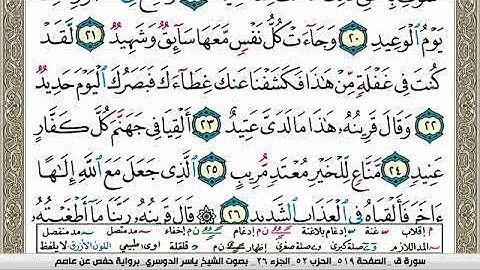 يَوْمُ ٱلْوَعِيدِ ٢٠ وَجَآءَتْ كُلُّ نَفْسٍ مَّعَهَا سَآئِقٌ وَشَهِيدٌ ٢١ لَّقَدْ
كُنتَ فِى غَفْلَةٍ مِّنْ هَٰذَا فَكَشَفْنَا عَنكَ غِطَآءَكَ فَبَصَرُكَ ٱلْيَوْمَ حَدِيدٌ
٢٢ وَقَالَ قَرِينُهُۥ هَٰذَا مَا لَدَىَّ عَتِيدٌ ٢٣ أَلْقِيَا فِى جَهَنَّمَ كُلَّ كَفَّارٍ
عَنِيدٍ ٢٤ مَّنَّاعٍ لِّلْخَيْرِ مُعْتَدٍ مُّرِيبٍ ٢٥ ٱلَّذِى جَعَلَ مَعَ ٱللَّهِ إِلَٰهًا
ءَاخَرَ فَأَلْقِيَاهُ فِى ٱلْعَذَابِ ٱلشَّدِيدِ ٢٦ ۞ قَالَ قَرِينُهُۥ رَبَّنَا مَآ أَطْغَيْتُهُۥ
م إقلاب غنة إدغام بلاغنة ن م إدغام إخفاء مد متصل مد منفصل
المد اللازم صلة كبرى صلة صغرى إظهار ن م قلقلة طبيعي اللون الأزرق لا يلفظ
سورة ق _ الصفحة ٥١٩_ الحزب ٥٢_ الجزء ٢٦_ بصوت الشيخ ياسر الدوسري_ برواية حفص عن عاصم